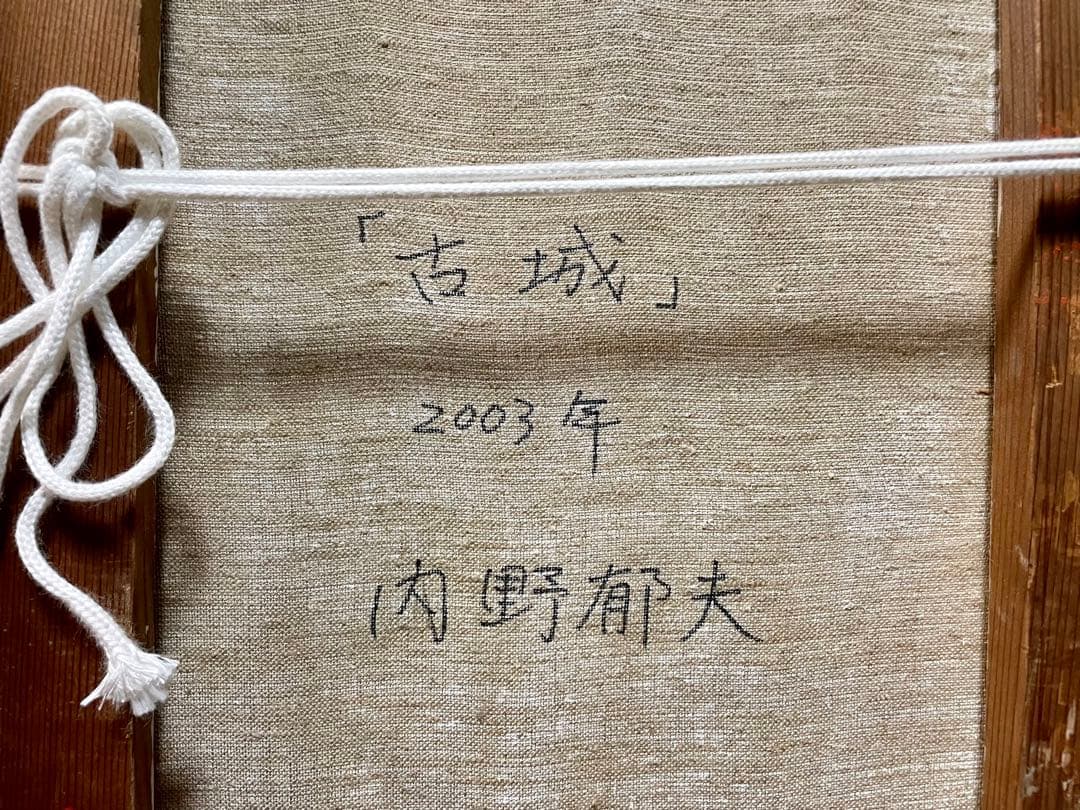 「古城」
2003年
内野郁夫